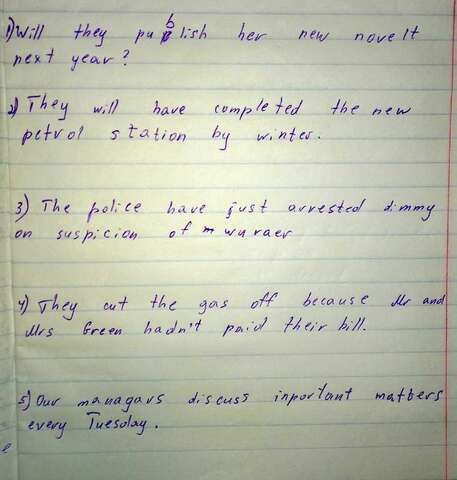 1) Will they publish her new novelt
next year?
2) They will have completed the new
petrol station by winter.
3) The police have just arrested dimmy
on suspicion of
4) They cut the gas off because Mr and
Mrs Green hadn't paid their bill.
5) Our managars discuss inportant matbers
every Tuesday.